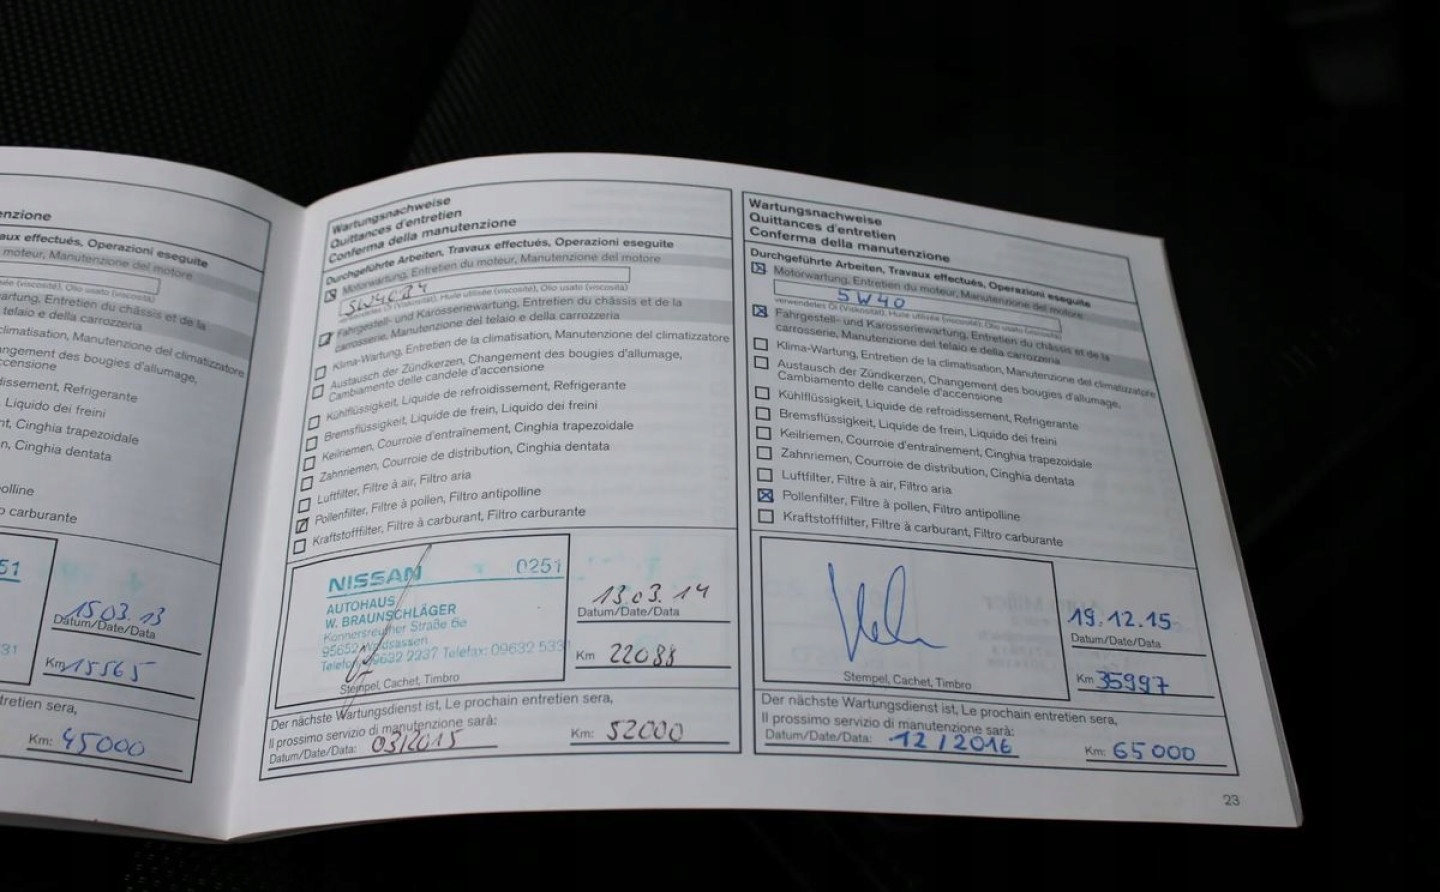 enzione
aux effectués, Operazioni eseguite
moteur, Manutenzione del motore
(viscosité), Olio usato (viscosità)
artung, Entretien du châssis et de la
telaio e della carrozzeria
climatisation, Manutenzione del climatizzatore
ngement des bougies d'allumage,
ccensione
dissement, Refrigerante
, Liquido dei freini
nt, Cinghia trapezoidale
n, Cinghia dentata
olline
o carburante
51
15.03.13
Datum/Date/Data
31
Km 15565
tretien sera,
Km: 45000
Wartungsnachweise
Quittances d'entretien
Conferma della manutenzione
Durchgeführte Arbeiten, Travaux effectués, Operazioni eseguite
Motorwartung, Entretien du moteur, Manutenzione del motore
verwendetes Öl (Viskosität), Huile utilisée (viscosité), Olio usato (viscosità)
Fahrgestell- und Karosseriewartung, Entretien du châssis et de la
carrosserie, Manutenzione del telaio e della carrozzeria
Klima-Wartung, Entretien de la climatisation, Manutenzione del climatizzatore
Austausch der Zündkerzen, Changement des bougies d'allumage,
Cambiamento delle candele d'accensione
Kühlflüssigkeit, Liquide de refroidissement, Refrigerante
Bremsflüssigkeit, Liquide de frein, Liquido dei freini
Keilriemen, Courroie d'entraînement, Cinghia trapezoidale
Zahnriemen, Courroie de distribution, Cinghia dentata
Luftfilter, Filtre à air, Filtro aria
Pollenfilter, Filtre à pollen, Filtro antipolline
Kraftstofffilter, Filtre à carburant, Filtro carburante
NISSAN 0251
AUTOHAUS
W. BRAUNSCHLÄGER
Konnersreuther Straße 6a
95652 Waldsassen
Telefon 09632 2237 Telefax: 09632 5331
Stempel, Cachet, Timbro
13.03.14
Datum/Date/Data
Km 22088
Der nächste Wartungsdienst ist, Le prochain entretien sera,
Il prossimo servizio di manutenzione sarà:
Datum/Date/Data: 03/2015 Km: 52000
Wartungsnachweise
Quittances d'entretien
Conferma della manutenzione
Durchgeführte Arbeiten, Travaux effectués, Operazioni eseguite
Motorwartung, Entretien du moteur, Manutenzione del motore
5W40
verwendetes Öl (Viskosität), Huile utilisée (viscosité), Olio usato (viscosità)
Fahrgestell- und Karosseriewartung, Entretien du châssis et de la
carrosserie, Manutenzione del telaio e della carrozzeria
Klima-Wartung, Entretien de la climatisation, Manutenzione del climatizzatore
Austausch der Zündkerzen, Changement des bougies d'allumage,
Cambiamento delle candele d'accensione
Kühlflüssigkeit, Liquide de refroidissement, Refrigerante
Bremsflüssigkeit, Liquide de frein, Liquido dei freini
Keilriemen, Courroie d'entraînement, Cinghia trapezoidale
Zahnriemen, Courroie de distribution, Cinghia dentata
Luftfilter, Filtre à air, Filtro aria
Pollenfilter, Filtre à pollen, Filtro antipolline
Kraftstofffilter, Filtre à carburant, Filtro carburante
Stempel, Cachet, Timbro
19.12.15
Datum/Date/Data
Km 35997
Der nächste Wartungsdienst ist, Le prochain entretien sera,
Il prossimo servizio di manutenzione sarà:
Datum/Date/Data: 12/2016 Km: 65000
23